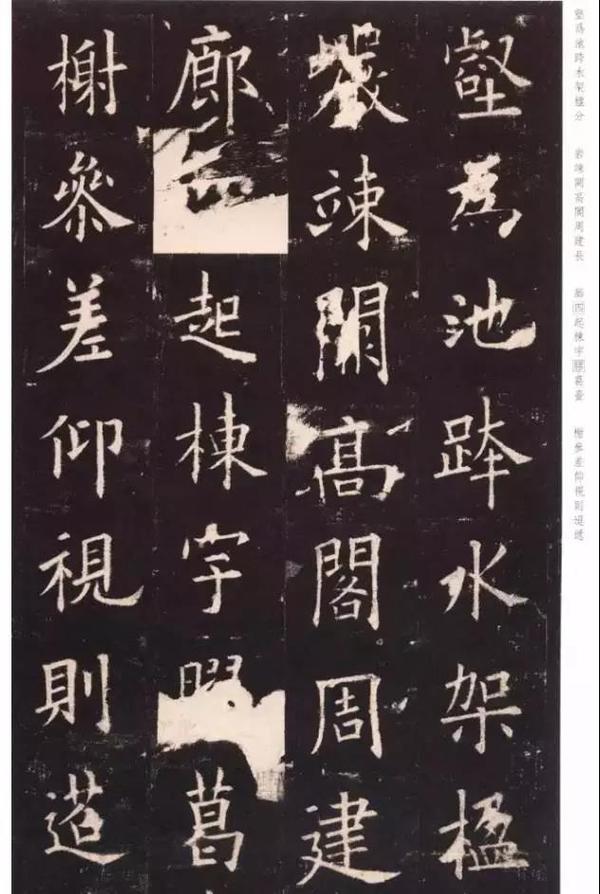 壑為池跨水架楹分 岩竦闕高閣周建長 廊四起棟宇膠葛臺 榭參差仰視則迢遞
壑為池跨水架楹
巖竦闕高閣周建
廊起棟宇葛
榭參差仰視則迢